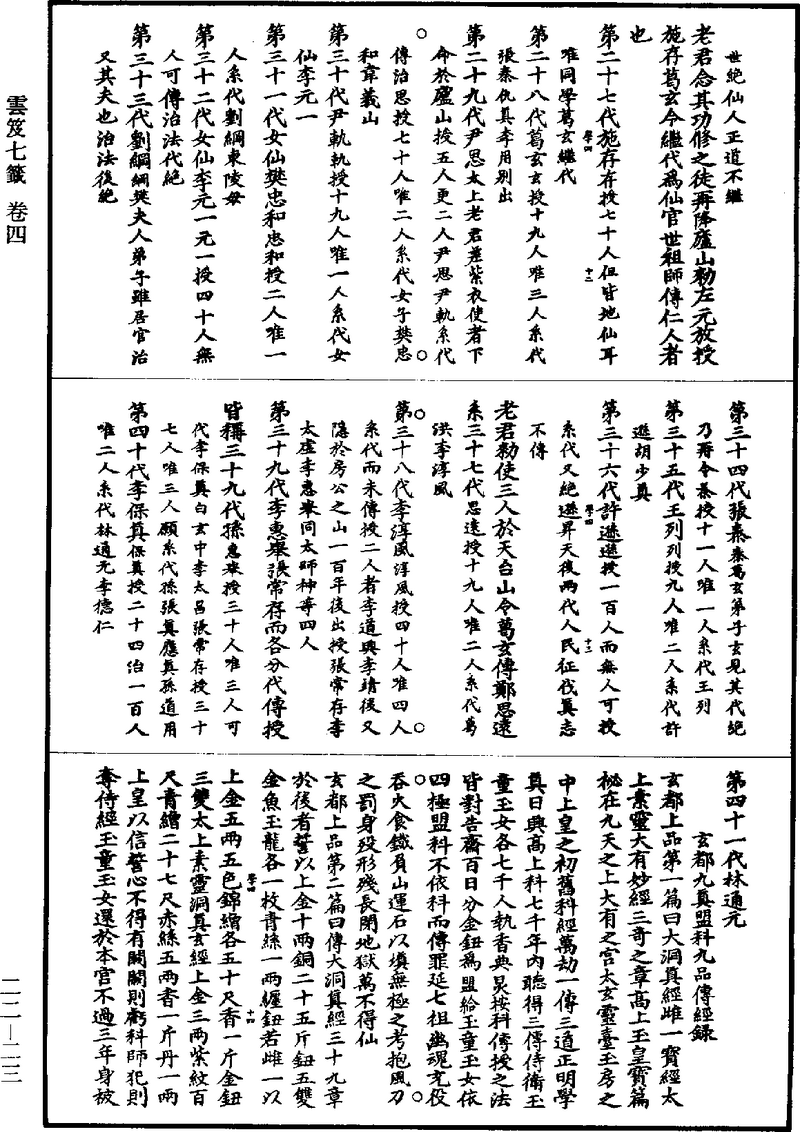 雲笈七籤 卷四
二二—二三
世絶仙人正道不繼
老君念其功修之徒再降廬山勑左元放授
施存葛玄令繼代爲仙官世祖師傳仁人者
也
第二十七代施存存授七十人但皆地仙耳
唯同學葛玄繼代
學四
十二
第二十八代葛玄玄授十九人唯三人系代
張泰仇真李用別出
第二十九代尹思太上老君差紫衣使者下
命於廬山授五人更二人尹思尹軌系代
傳治思授七十人唯二人系代女子樊忠
和韋義山
第三十代尹軌軌授十九人唯一人系代女
仙李元一
第三十一代女仙樊忠和忠和授二人唯一
人系代劉綱東陵母
第三十二代女仙李元一元一授四十人無
人可傳治法代絶
第三十三代劉綱綱樊夫人弟子雖居官治
又其夫也治法復絶
第三十四代張泰泰葛玄弟子玄見其代絶
乃再令泰授十一人唯一人系代王列
第三十五代王列列授九人唯二人系代許
遜胡少真
第三十六代許遜遜授一百人而無人可授
系代又絶遜昇天後兩代人民征伐真志
不傳
學四
十三
老君勑使三人於天台山令葛玄傳鄭思遠
系三十七代思遠授十九人唯二人系代葛
洪李淳風
第三十八代李淳風淳風授四十人唯四人
系代而未傳授二人者李道興李靖後又
隱於房公之山一百年後出授張常存李
太虛李惠舉同太師神等四人
第三十九代李惠舉張常存而各分代傳授
皆稱三十九代孫惠舉授三十人唯三人可
代李保真白玄中李太呂張常存授三十
七人唯三人願系代孫張真應真孫道用
第四十代李保真保真授二十四治一百人
唯二人系代林通元李德仁
第四十一代林通元
玄都九真盟科九品傳經錄
玄都上品第一篇曰大洞真經雌一寶經太
上素靈大有妙經三奇之章高上玉皇寶篇
秘在九天之上大有之宮太玄靈臺玉房之
中上皇之初舊科經萬劫一傳三道正明學
真日興高上科七千年內聽得三傳侍衞玉
童玉女各七千人執香典炅按科傳授之法
皆對告齋百日分金鈕爲盟給玉童玉女依
四極盟科不依科而傳罪延七祖幽魂充役
吞火食鐵負山運石以塡無極之考抱風刀
之罰身殁形殘長閉地獄萬不得仙
玄都上品第二篇曰傳大洞真經三十九章
於後者誓以上金十兩銅二十五斤鈕五雙
金魚玉龍各一枚青絲一兩纏鈕若雌一以
上金五兩五色錦繒各五十尺香一斤金鈕
學四
十四
三雙太上素靈洞真玄經上金三兩紫紋百
尺青繒二十七尺赤絲五兩香一斤丹一兩
上皇以信誓心不得有闕闕則虧科師犯則
奪侍經玉童玉女還於本宮不過三年身被